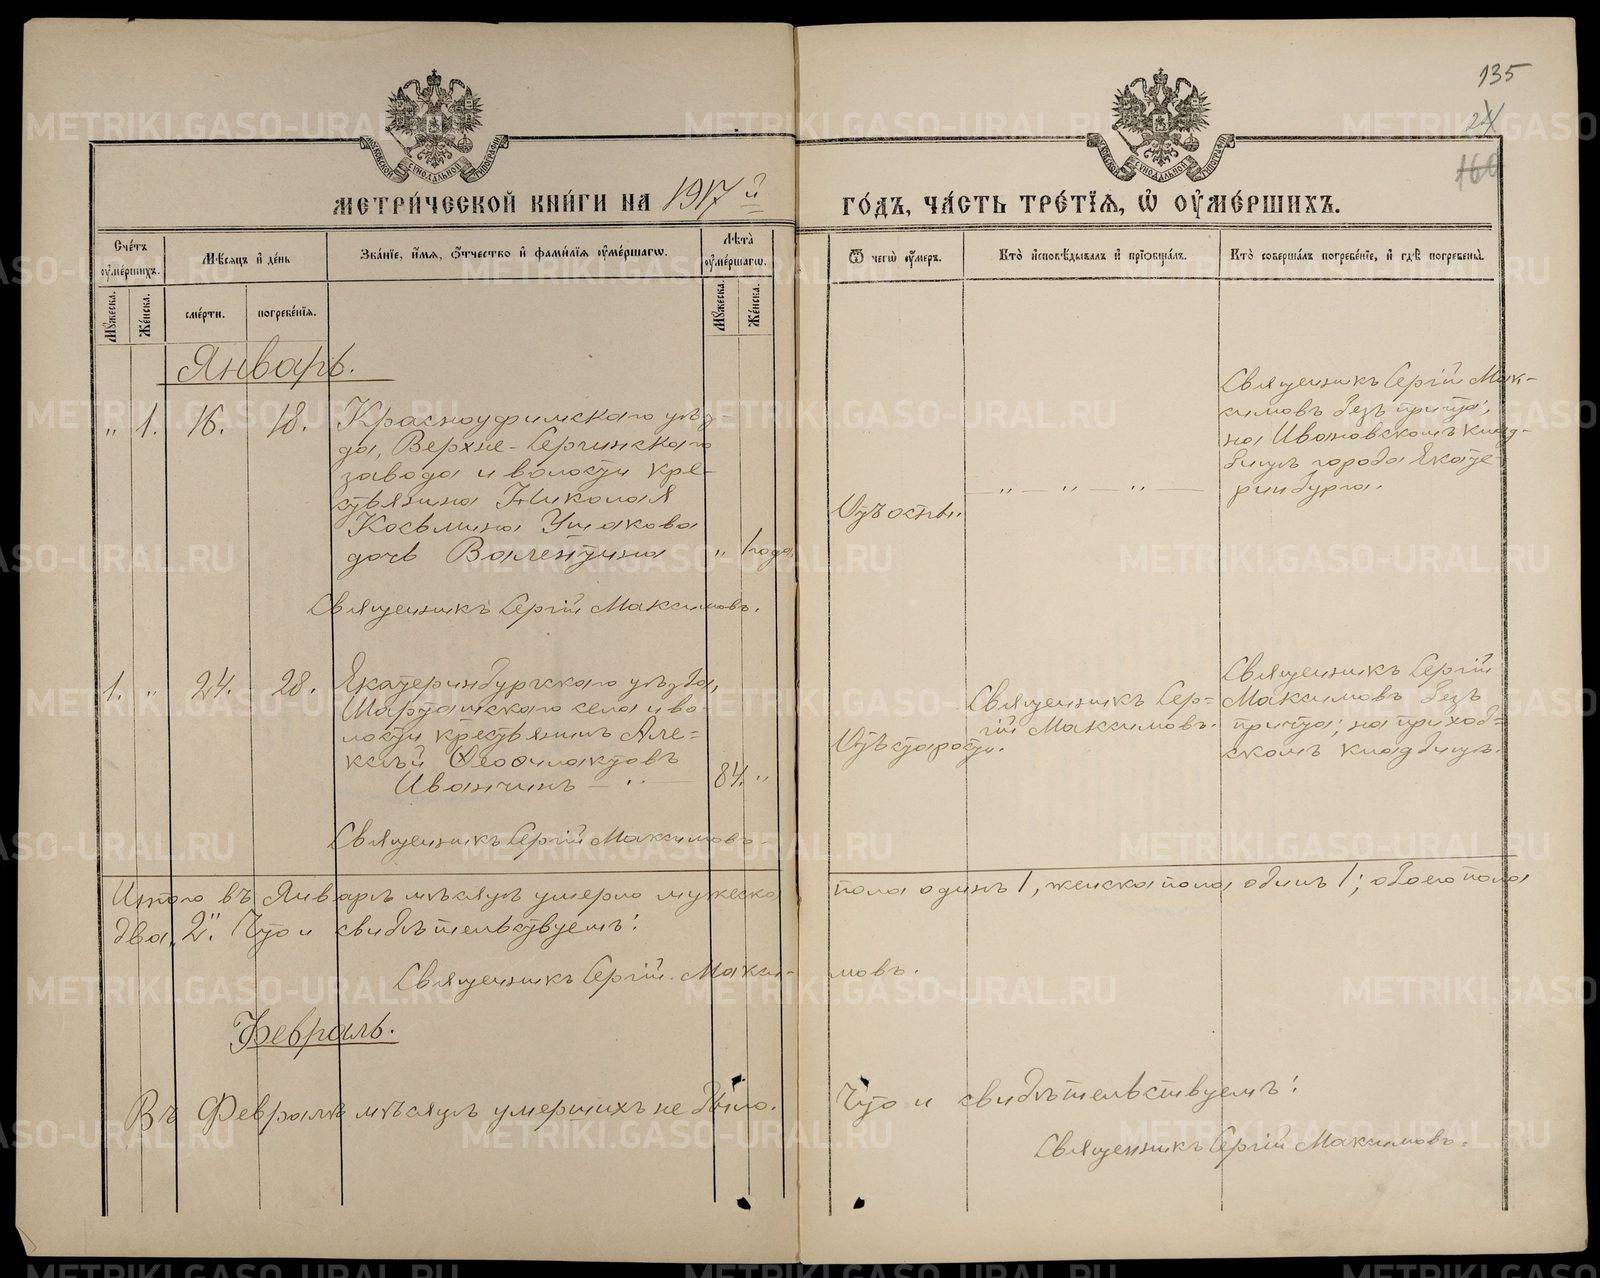 135
24
160
МОСКОВСКОЙ СУНОДАЛЬНОЙ ТИПОГРАФІИ
МОСКОВСКОЙ СУНОДАЛЬНОЙ ТИПОГРАФІИ
МЕТРИ́ЧЕСКОЙ КНИ́ГИ НА 1917 й
ГО́ДЪ, ЧА́СТЬ ТРЕ́ТІЯ, Ѡ ОУМЕ́РШИХЪ.
Сче́тъ оуме́ршихъ.
Мѣ́сяцъ и де́нь
Зва́ніе, и́мя, о́тчество и фами́лія оуме́ршагѡ.
Лѣта̀ оуме́ршагѡ.
Ѿ чегѡ̀ оу́меръ.
Кто̀ исповѣ́дывалъ и пріобща́лъ.
Кто̀ соверша́лъ погребе́ніе, и гдѣ̀ погребены̀.
Му́жеска.
Же́нска.
сме́рти.
погребе́нія.
Му́жеска.
Же́нска.
Январь.
„ 1. 16. 18. Красноуфимскаго уѣз-
да, Верхне-Сергинскаго
завода и волости кре-
стьянина Николая
Косьмина Ушакова
дочь Валентина „ 1 года
Отъ оспы.
— „ — „ — „ —
Священникъ Сергій Мак-
симовъ безъ причта;
на Ивановскомъ клад-
бищѣ города Екате-
ринбурга.
Священникъ Сергій Максимовъ.
1. „ 24. 28. Екатеринбургскаго уѣзда,
Шарташскаго села и во-
лости крестьянинъ Але-
ксѣй Ѳеофилактовъ
Иванчинъ — „ — 84. „
Отъ старости.
Священникъ Сер-
гій Максимовъ.
Священникъ Сергій
Максимовъ безъ
причта; на приход-
скомъ кладбищѣ.
Священникъ Сергій Максимовъ.
Итого въ Январѣ мѣсяцѣ умерло мужеска пола одинъ 1, женска пола одинъ 1; обоего пола
два „2“. Что и свидѣтельствуемъ:
Священникъ Сергій Макси- мовъ.
Февраль.
Въ Февралѣ мѣсяцѣ умершихъ не было. Что и свидѣтельствуемъ:
Священникъ Сергій Максимовъ.
METRIKI.GASO-URAL.RU